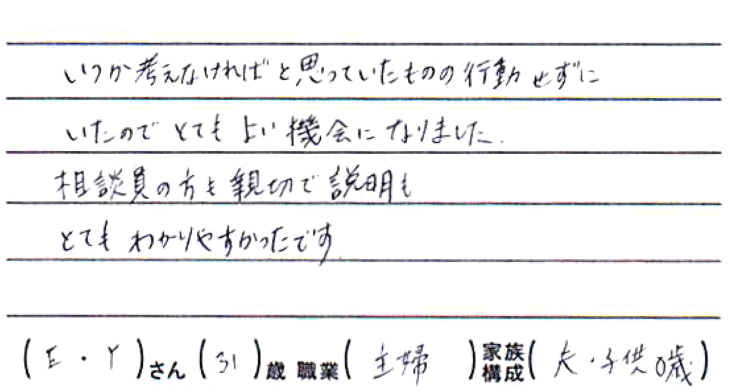 いつか考えなければと思っていたものの行動せずに
いたのでとてもよい機会になりました.
相談員の方も親切で説明も
とてもわかりやすかったです.
(E・Y)さん(31)歳 職業(主婦)家族構成(夫・子供0歳)